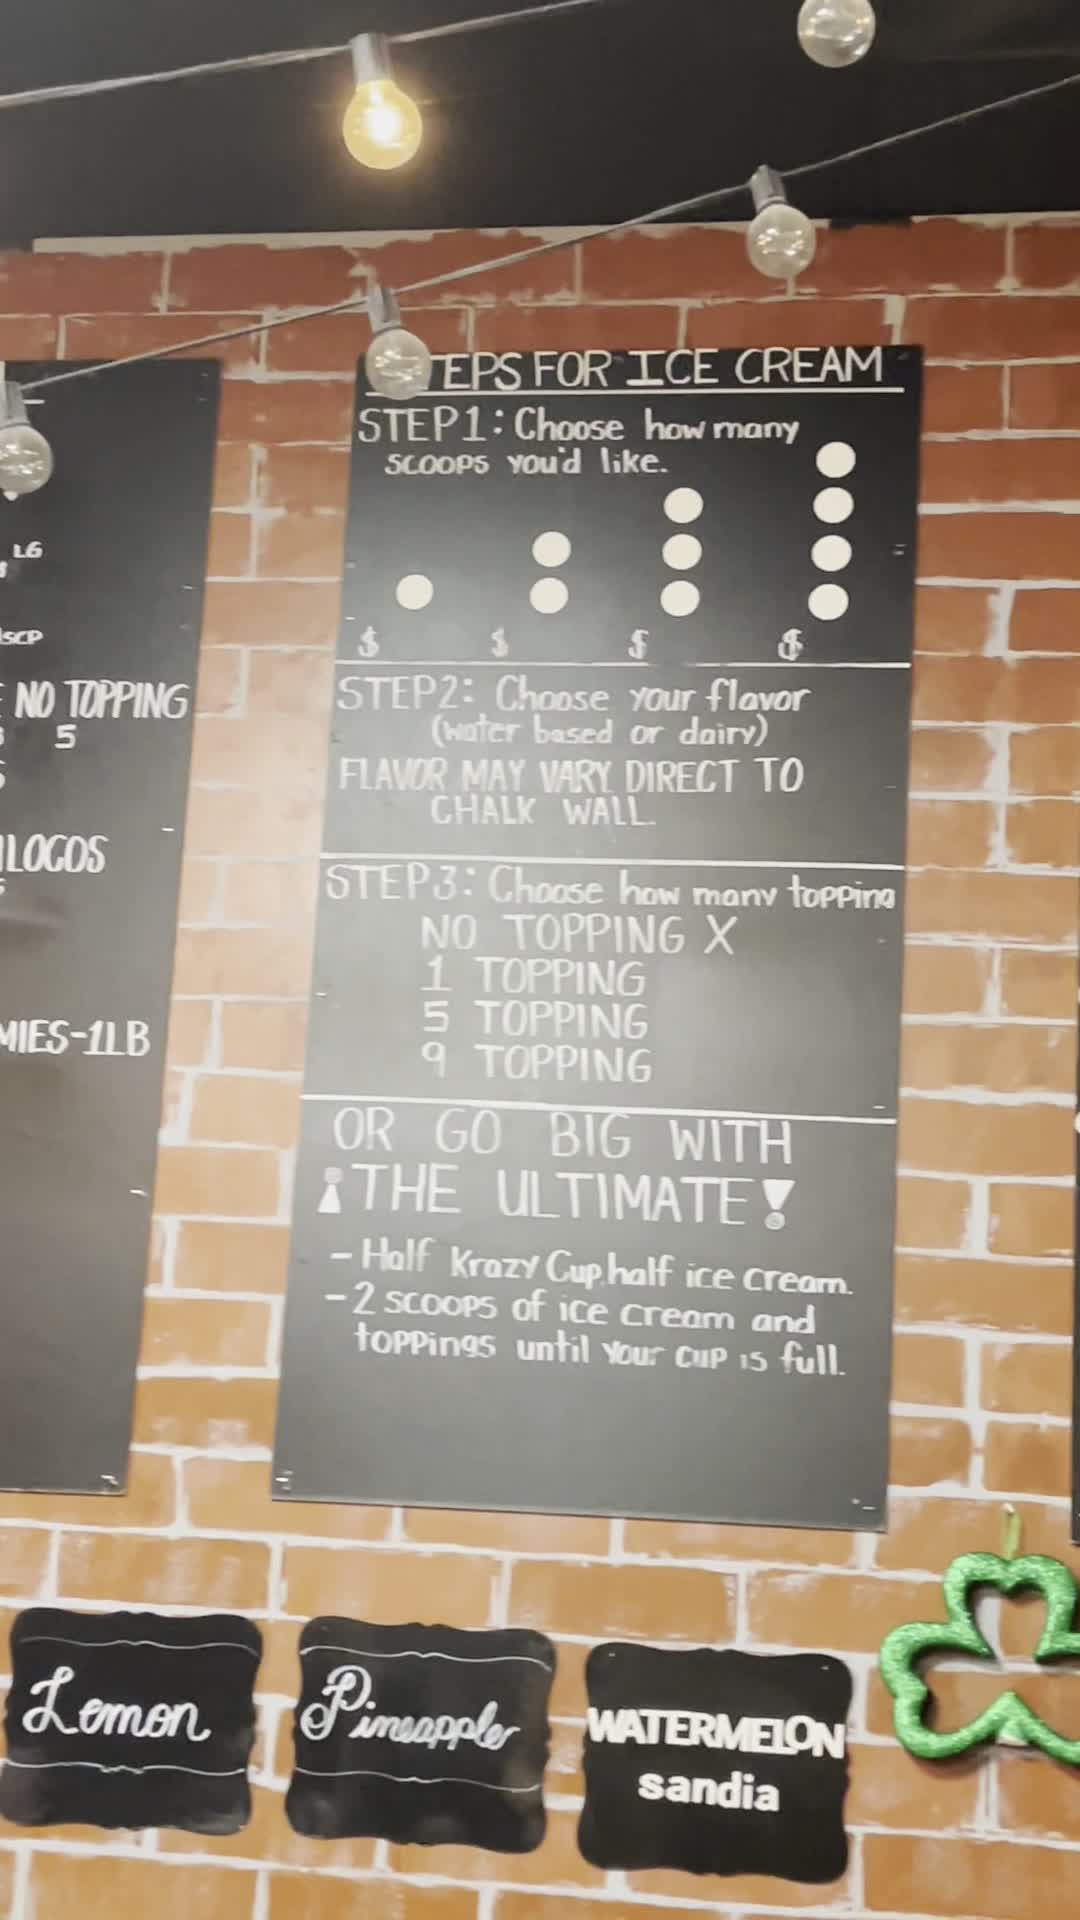 L6
SCP
NO TOPPING
5
ILOCOS
MIES-1LB
TEPS FOR ICE CREAM
STEP1: Choose how many
SCOOPS you'd like.
$ $ $ $
STEP2: Choose your flavor
(water based or dairy)
FLAVOR MAY VARY DIRECT TO
CHALK WALL.
STEP3: Choose how many topping
NO TOPPING X
1 TOPPING
5 TOPPING
9 TOPPING
OR GO BIG WITH
¡THE ULTIMATE!
- Half Krazy Cup, half ice cream.
- 2 scoops of ice cream and
toppings until your cup is full.
Lemon
Pineapple
WATERMELON
sandia